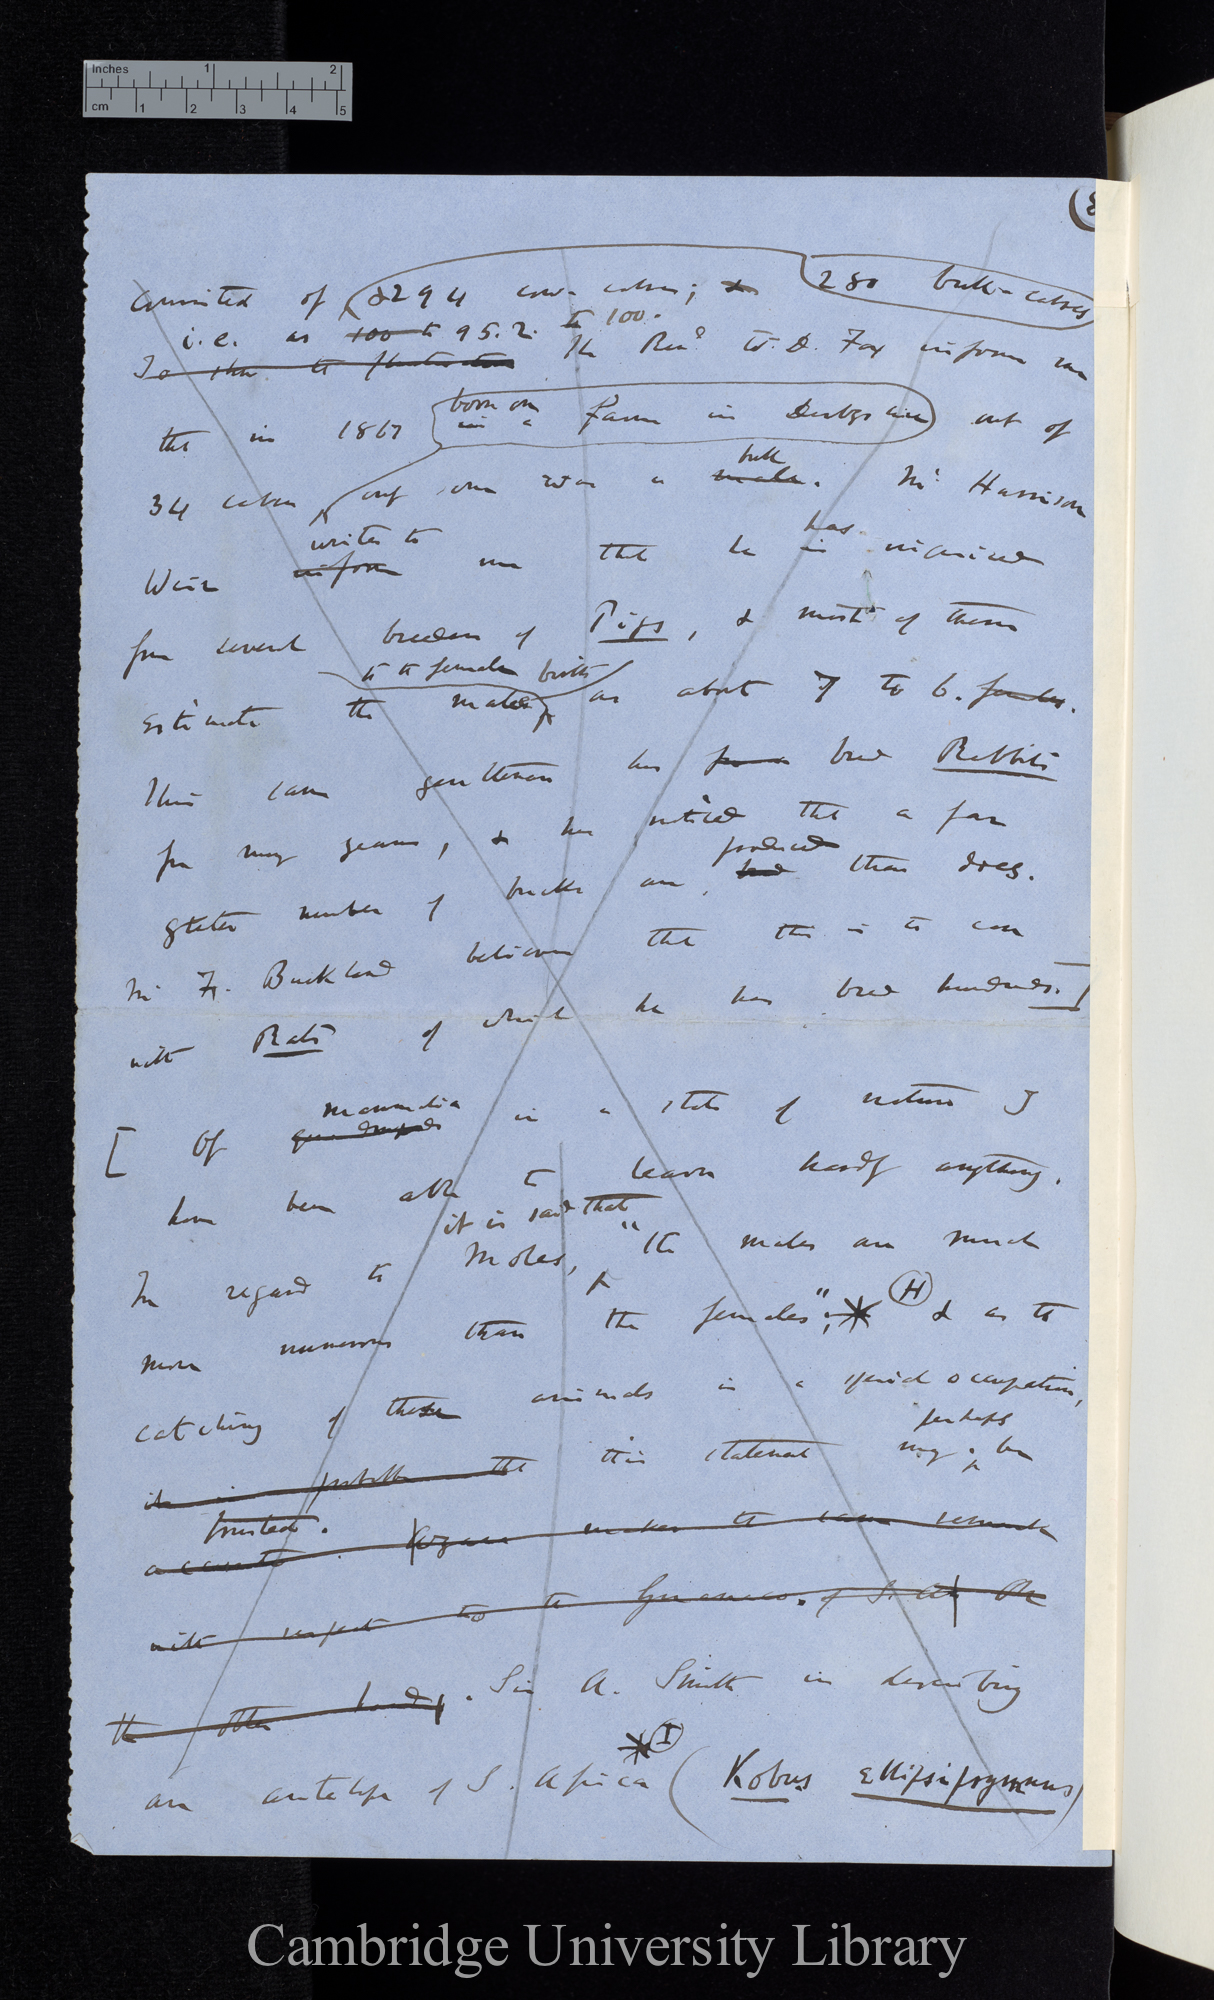 Inches 1 2
cm 1 2 3 4 5
consisted of 294 cow-calves; & 280 bull-calves
i.e. as 100 to 95.2. to 100.
The Revd W. D. Fox informs me
that in 1867 born on in a farm in Derbyshire out of
34 calves only one was a male bull. Mr Harrison
Weir informs writes to me that he is has inquired
from several breeders of Pigs, & most of them
to the female births
estimate the males as about 7 to 6. females.
This same gentleman has bred Rabbits
for many years, & has noticed that a far
greater number of bucks are, bred produced than does.
Mr F. Buckland believes that this is the case
with Rats of which he has bred hundreds.]
[ Of quadrupeds mammalia in a state of nature I
have been able to learn hardly anything.
it is said that
In regard to Moles, "the males are much
more numerous than the females"; * H & as the
catching of these animals is a special occupation,
it is probable that this statement may perhaps be
accurate trusted. makes the same remark
with respect to the Guanaco. of S. Am On
the other hand, Sir A. Smith in describing
an antelope of S. Africa * I (Kobus ellipsiprymnus)
Cambridge University Library